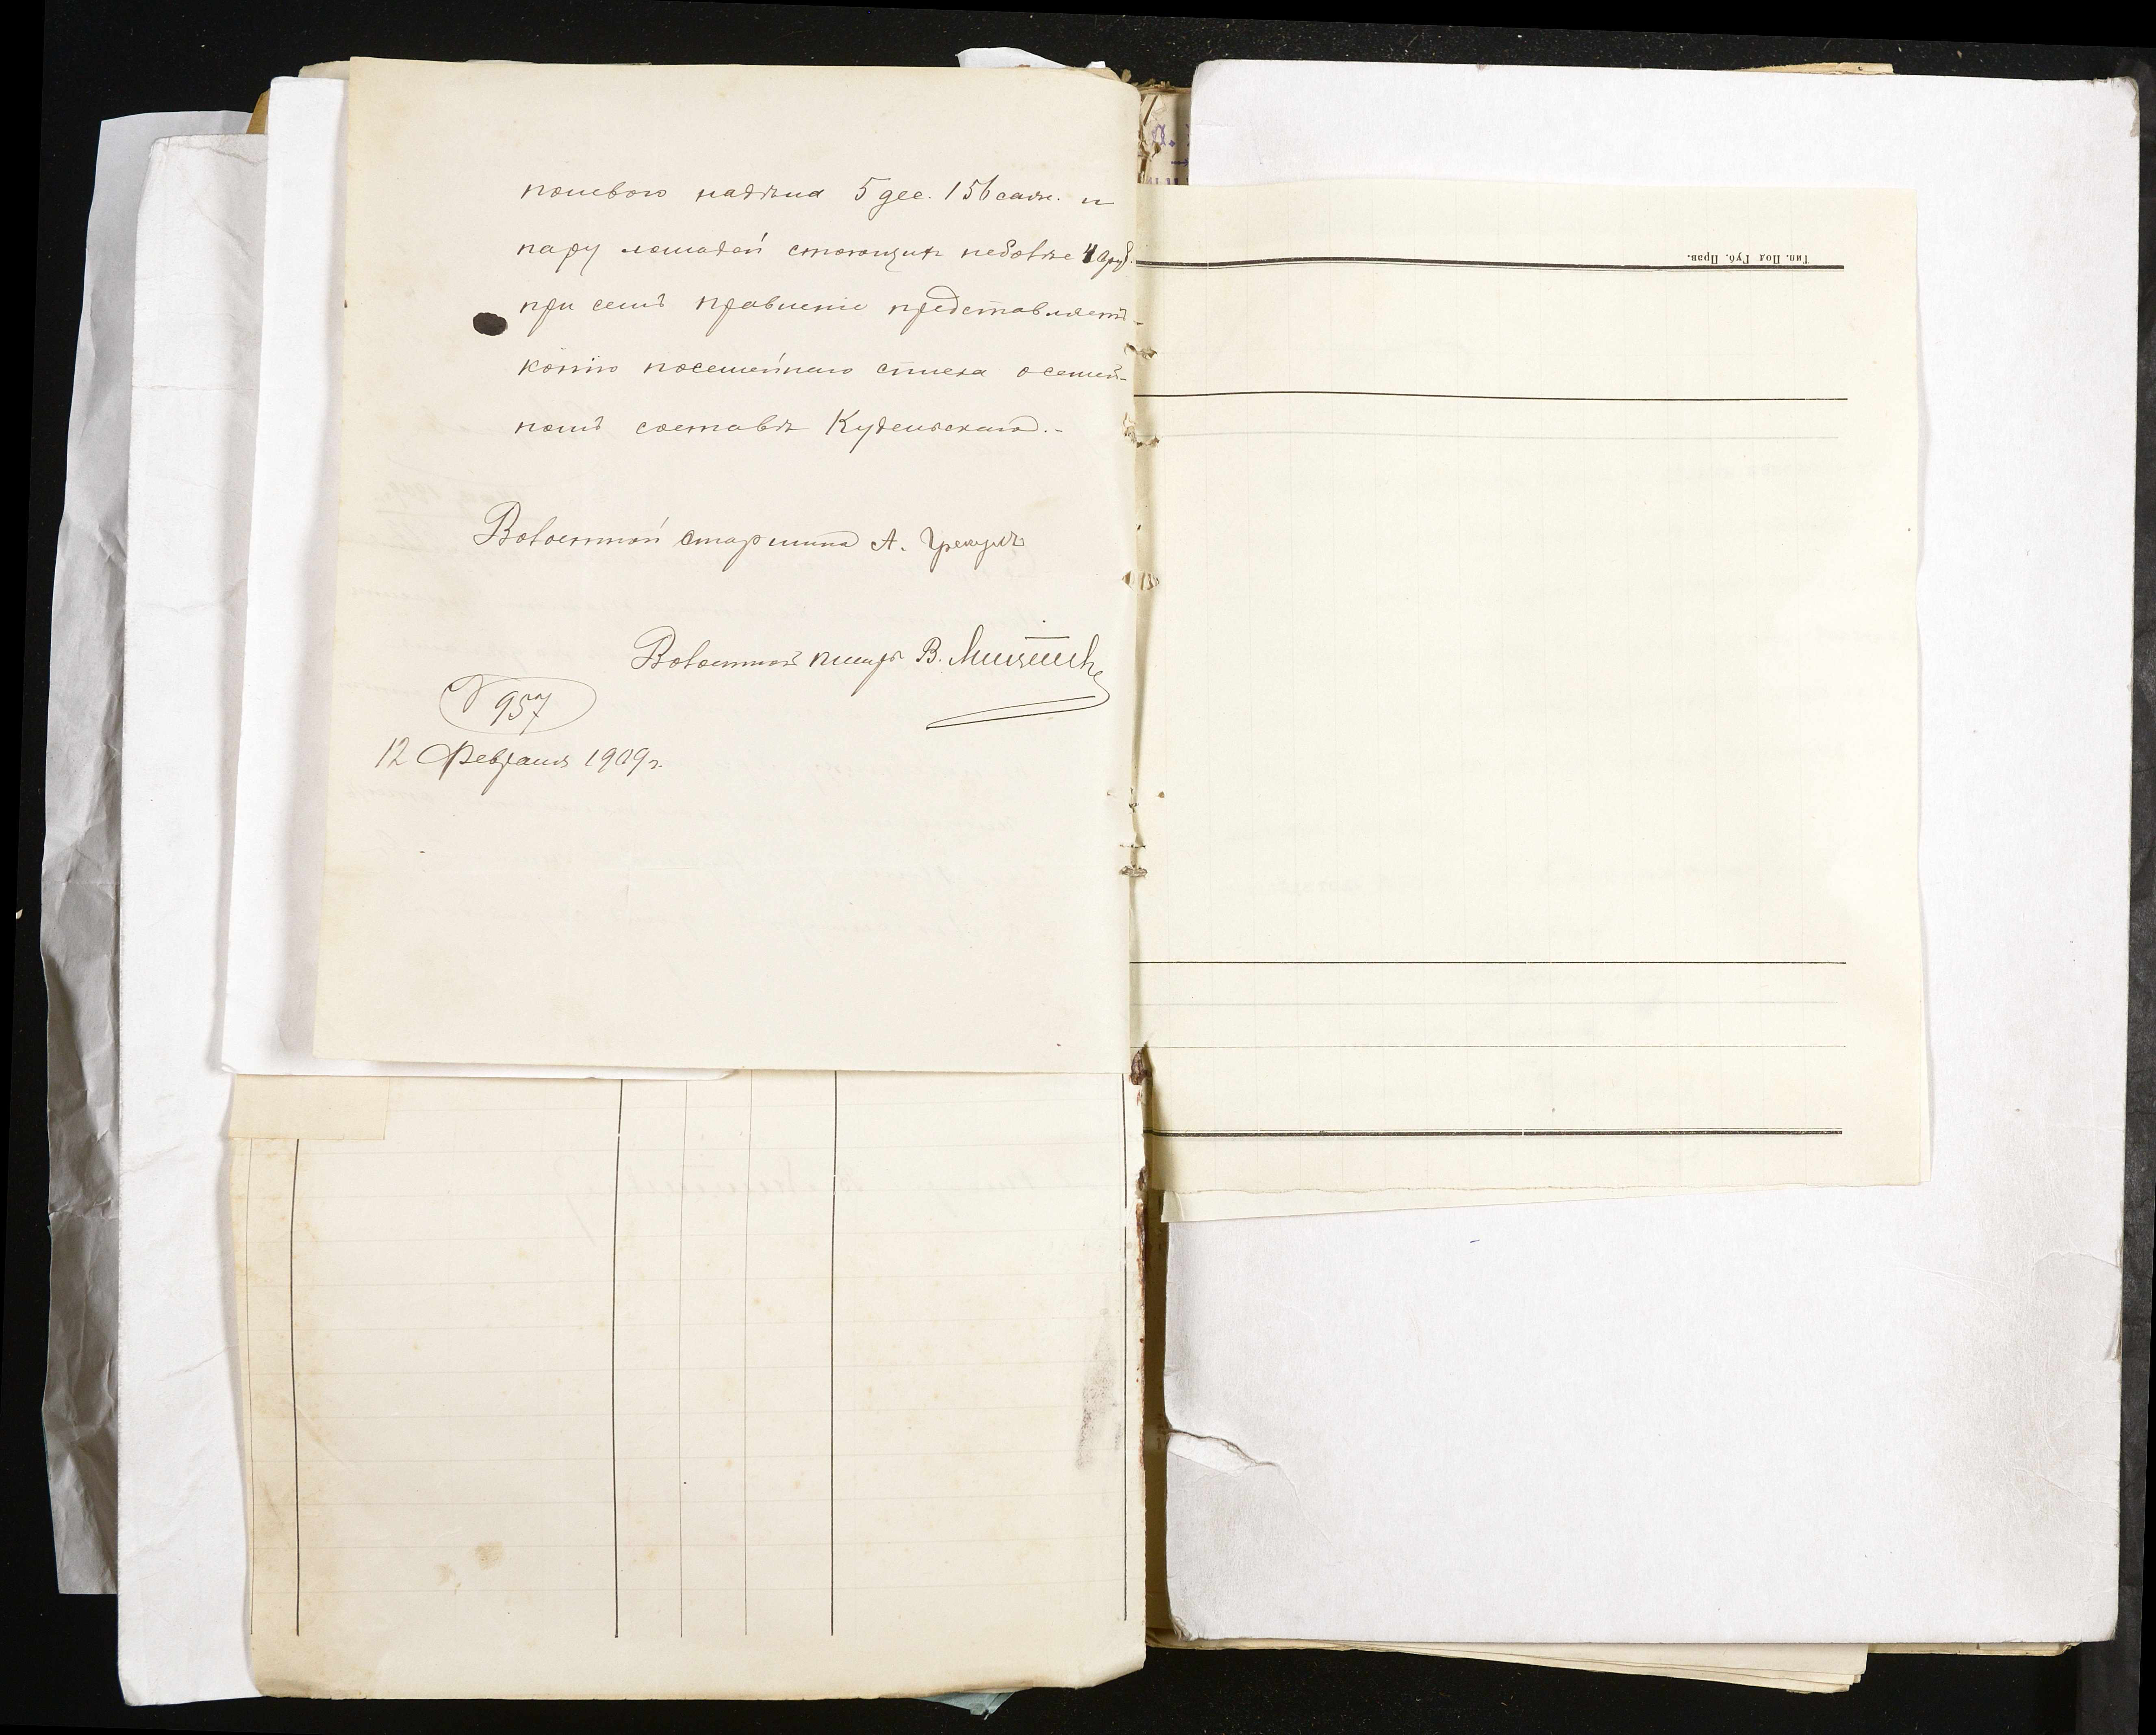 полевого надѣла 5 дес. 156 саж. и
пару лошадей стоющих неболѣе 40 руб.
при семъ правленіе представляетъ
копію посемейнаго списка о семей-
номъ составѣ Кудельскаго.-
Волостной старшина А. Грекулъ
Волостной писарь В.
№ 957
12 Февраля 1909 г.
Тип. Под. Губ. Прав.